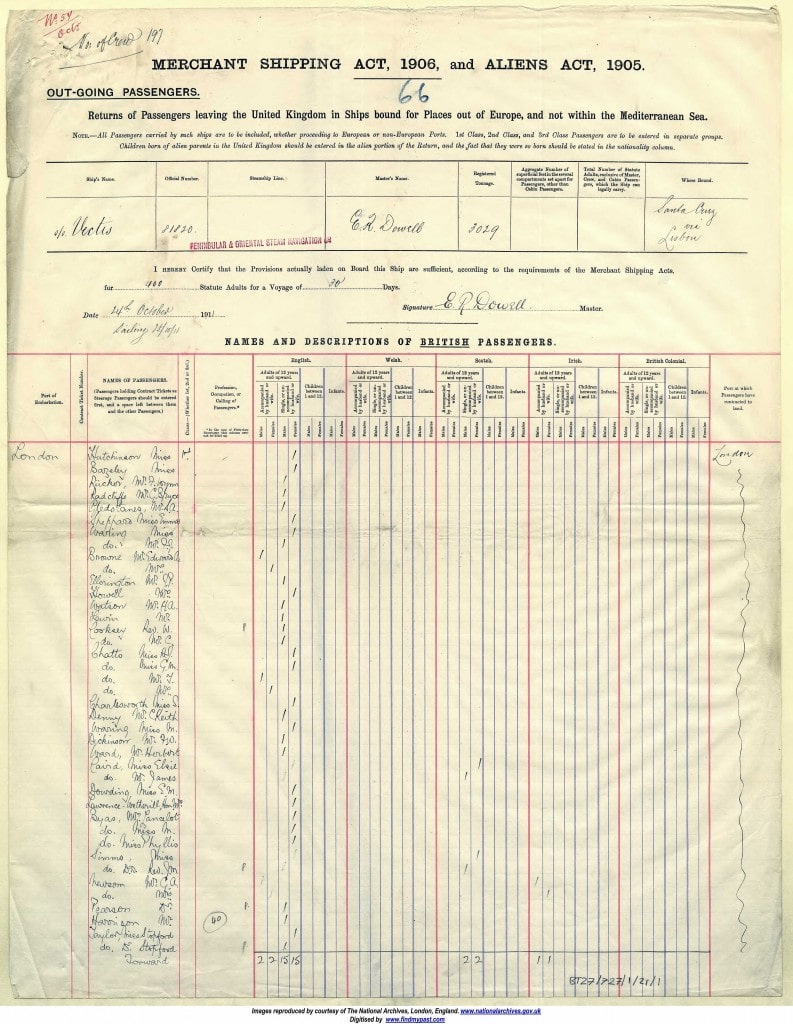 No 54
Oct
No. of Crew 197
MERCHANT SHIPPING ACT, 1906, and ALIENS ACT, 1905.
66
OUT-GOING PASSENGERS.
Returns of Passengers leaving the United Kingdom in Ships bound for Places out of Europe, and not within the Mediterranean Sea.
NOTE.—All Passengers carried by such ships are to be included, whether proceeding to European or non-European Ports. 1st Class, 2nd Class, and 3rd Class Passengers are to be entered in separate groups.
Children born of alien parents in the United Kingdom should be entered in the alien portion of the Return, and the fact that they were so born should be stated in the nationality column.
Ship's Name. Official Number. Steamship Line. Master's Name. Registered Tonnage. Aggregate Number of superficial feet in the several compartments set apart for Passengers, other than Cabin Passengers. Total Number of Statute Adults, exclusive of Master, Crew, and Cabin Passengers, which the Ship can legally carry. Where Bound.
s/s. Vectis 81820. PENINSULAR & ORIENTAL STEAM NAVIGATION E. R. Dowell 3029 Santa Cruz via Lisbon
I HEREBY Certify that the Provisions actually laden on Board this Ship are sufficient, according to the requirements of the Merchant Shipping Acts.
for 400 Statute Adults for a Voyage of 30 Days.
Date 24th October 1911 Signature E. R. Dowell. Master.
NAMES AND DESCRIPTIONS OF BRITISH PASSENGERS.
Port of Embarkation. Contract Ticket Number. NAMES OF PASSENGERS. Profession, Occupation, or Calling of Passengers.* English. Welsh. Scotch. Irish. British Colonial. Port at which Passengers have contracted to land.
London Hutchinson Miss London
Bazeley Miss
Sheppard Miss Emma
Waring Miss
do. Mr.
Browne Mr Edward
do. Mrs
Howell
Watson Mr H.A.
Cooksey Rev. W.
do. Mr C.
Chatto Miss
do. Miss G.M.
do. Mr T.
do. Mrs
Charlesworth Miss S.
Denny Mr C Keith
Waring Miss M.
Dickinson Mr
Ward, Mr Herbert
Caird, Miss Elsie
do. Mr James
Dowding Miss E.M.
Lawrence-Wetherill, Hon Mrs
Byas, Mr Lancelot
do. Miss M.
do. Miss Phyllis
Simms, Miss
do. Dr. Rev.
Newsom Mr G.A.
do. Mrs
Pearson Dr.
Harrison Mr.
Taylor Miss Stopford
do. Stopford
40
Forward 2 2 15 15 2 2 1 1
BT27/727/1/21/1
Images reproduced by courtesy of The National Archives, London, England. www.nationalarchives.gov.uk
Digitised by www.findmypast.com